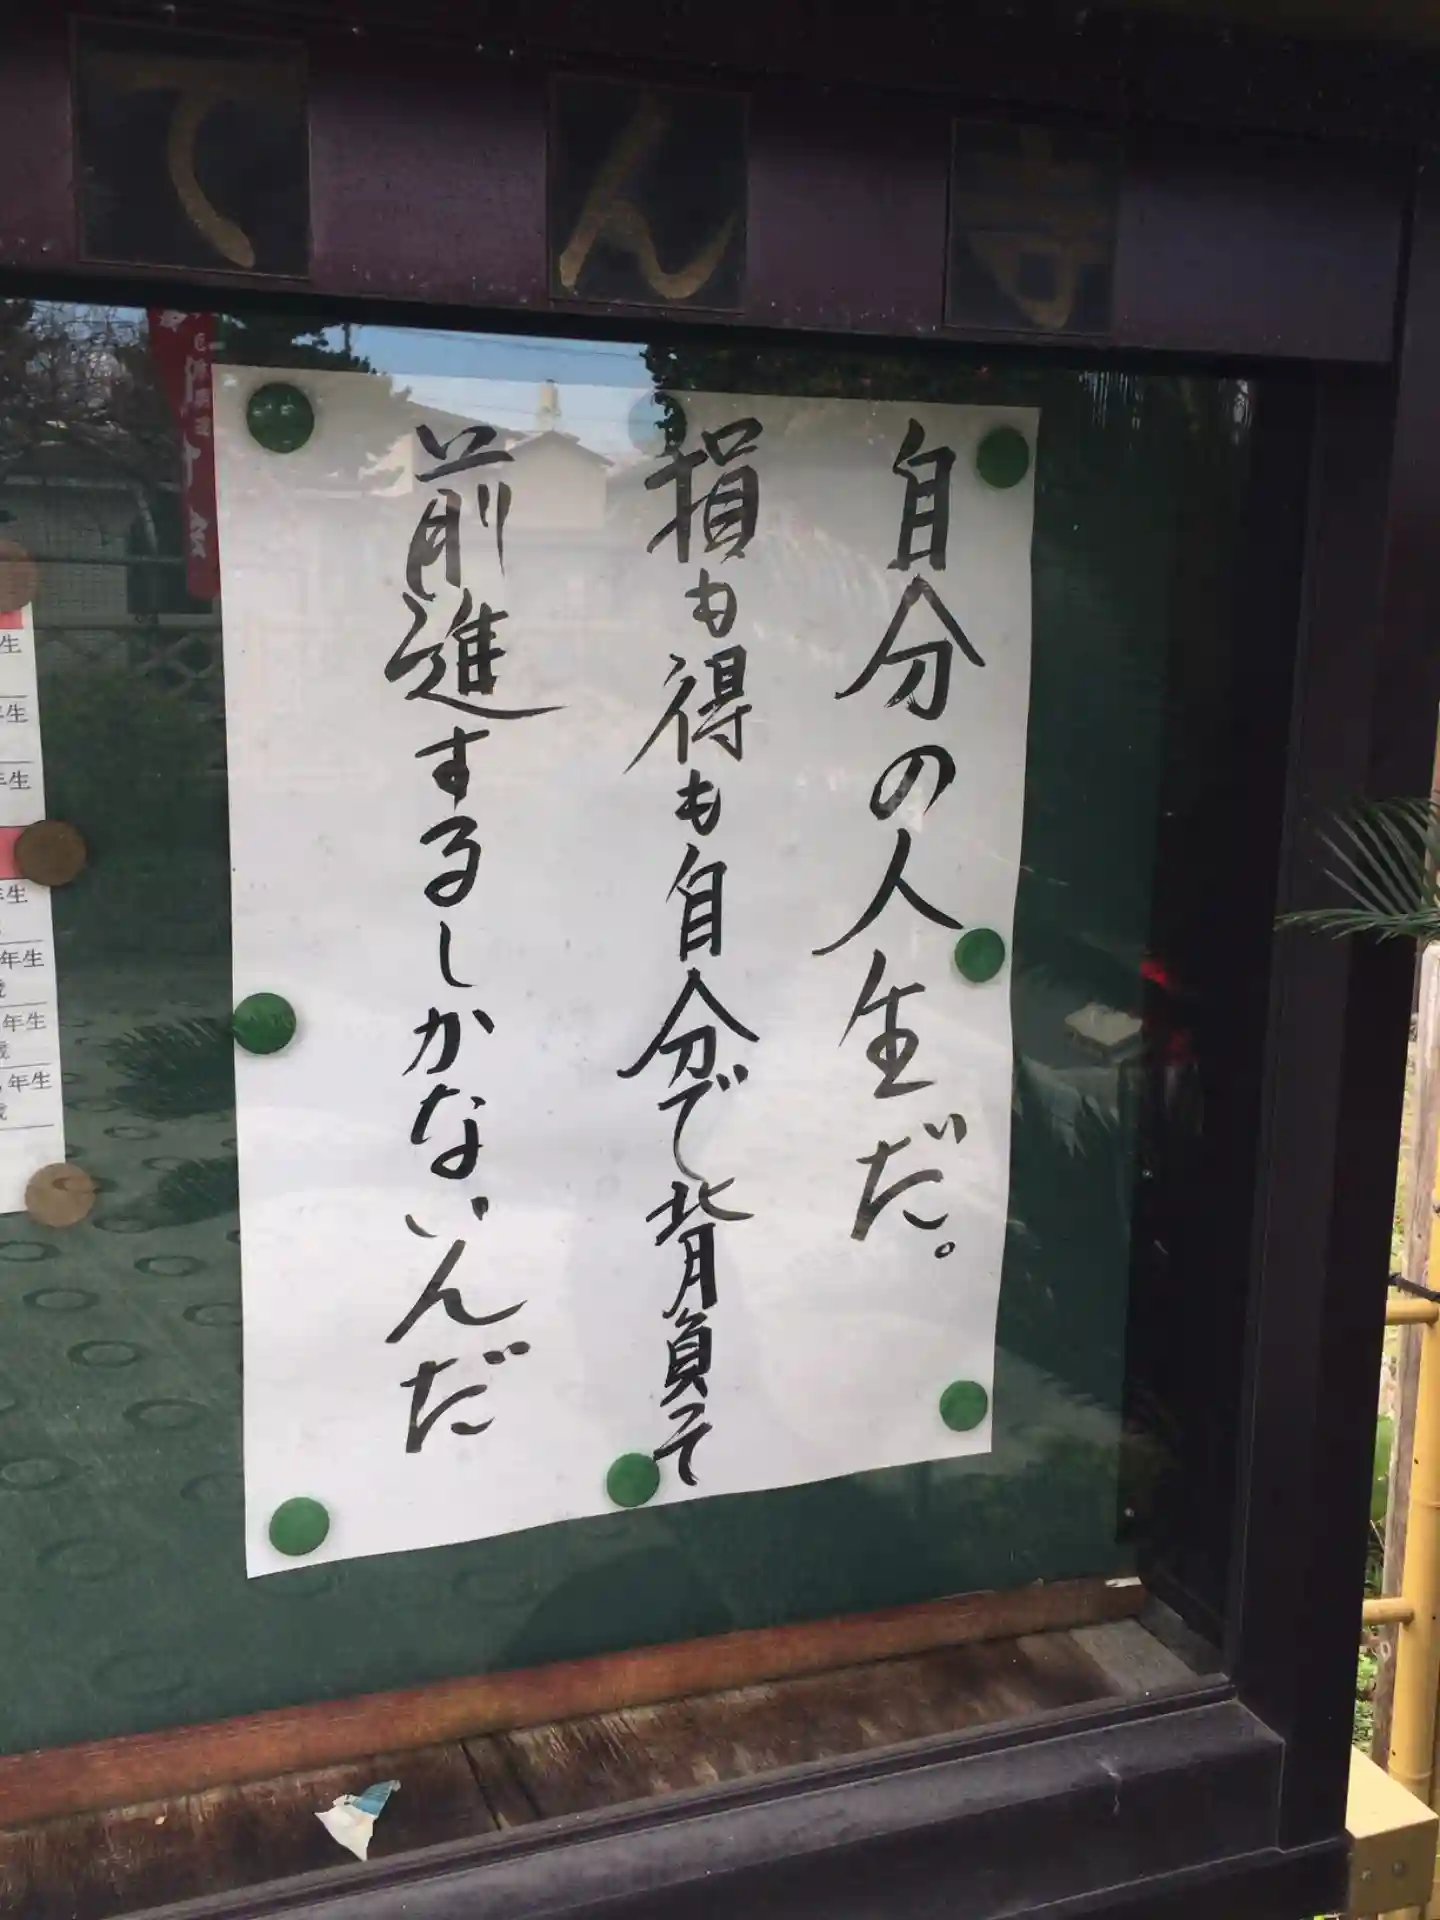 てん寺
自分の人生だ。
損も得も自分で背負って
前進するしかないんだ
年生
年生
年生
年生
年生
年生